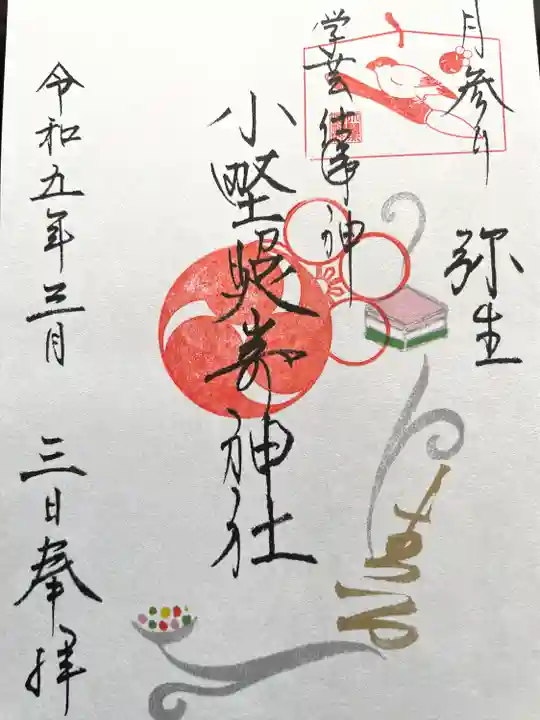 月参り
弥生
学芸仕事神
小野照崎神社
令和五年三月
三日奉拝